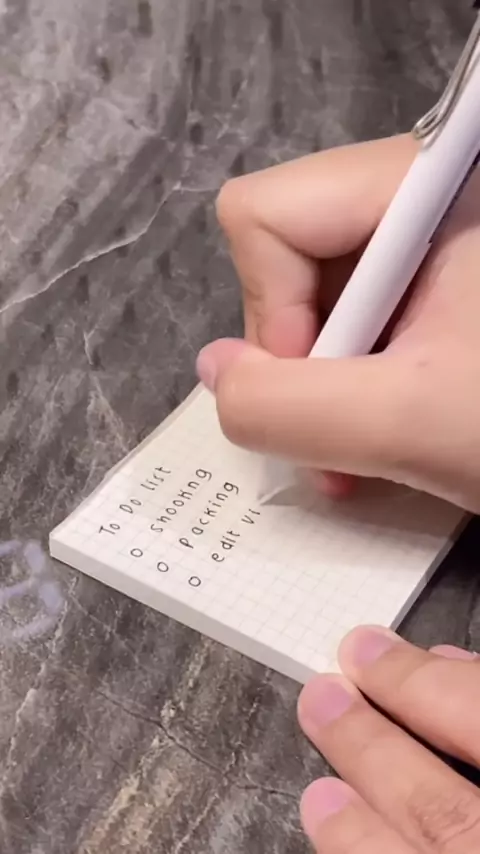 To Do list
o shooting
o packing
o edit vi